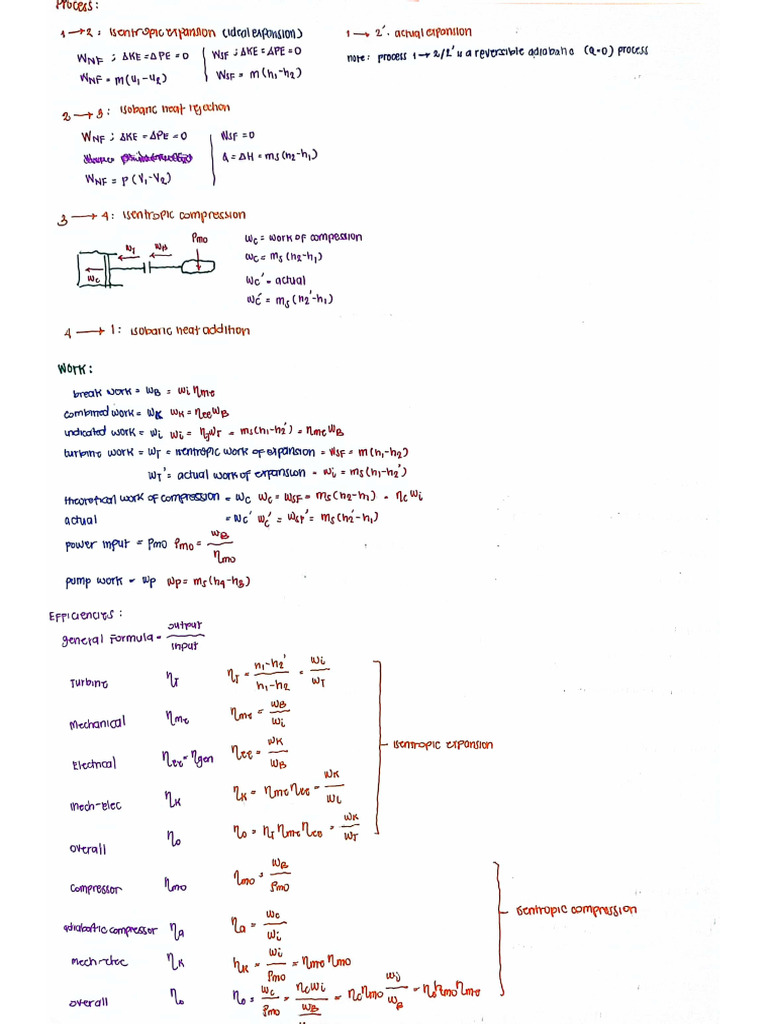 Process:
1 → 2 : isentropic expansion (ideal expansion)
1 → 2' . actual expansion
W_NF ; ΔKE = ΔPE = 0
W_SF ; ΔKE = ΔPE = 0
note: process 1 → 2/2' is a reversible adiabatic (Q=0) process
W_NF = m(u₁-u₂)
W_SF = m(h₁-h₂)
2 → 3 : isobaric heat rejection
W_NF ; ΔKE = ΔPE = 0
W_SF = 0
Q = ΔH = ms(h₂-h₁)
W_NF = p(V₁-V₂)
3 → 4 : isentropic compression
W_I
W_B
Pmo
W_C
W_C = work of compression
W_C = ms(h₂-h₁)
W_C' = actual
W_C' = ms(h₂'-h₁)
4 → 1 : isobaric heat addition
Work:
break work = W_B = Wi ηme
combined work = W_K W_K = ηee W_B
indicated work = Wi Wi = η_T W_T = ms(h₁-h₂') = ηme W_B
turbine work = W_T = isentropic work of expansion = W_SF = m(h₁-h₂)
W_T' = actual work of expansion = Wi = ms(h₁-h₂')
theoretical work of compression = W_C W_C = W_SF = ms(h₂-h₁) = η_C Wi
actual = W_C' W_C' = W_ST' = ms(h₂'-h₁)
power input = Pmo Pmo = W_B / ηmo
pump work = Wp Wp = ms(h₄-h₃)
Efficiencies:
general formula = output / input
Turbine η_T η_T = h₁-h₂' / h₁-h₂ = Wi / W_T
Mechanical ηme ηme = W_B / Wi
Electrical ηee = ηgen ηee = W_K / W_B
isentropic expansion
mech-elec η_K η_K = ηme ηee = W_K / Wi
overall η₀ η₀ = η_T ηme ηee = W_K / W_T
compressor ηmo ηmo = W_B / Pmo
isentropic compression
adiabatic compressor η_A η_A = W_C / Wi
mech-elec η_K η_K = Wi / Pmo = ηme ηmo
overall η₀ η₀ = W_C / Pmo = η_C Wi / W_B = η_C ηmo Wi / W_B = η_C ηmo ηme